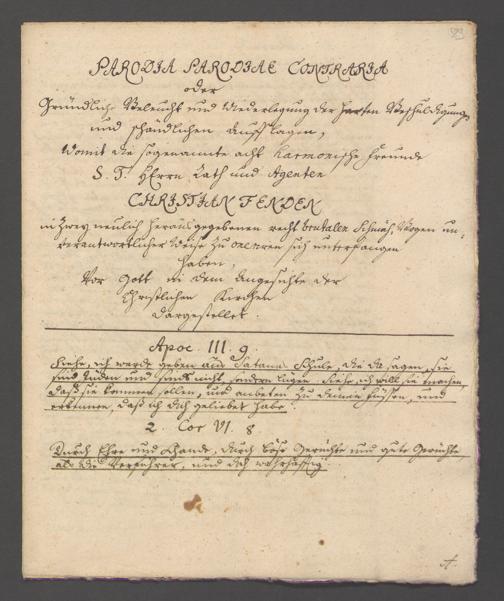 PARODIA PARODIAE CONTRARIA
oder
Gründliche Beleucht und Wiederlegung der harten Beschuldigung
und schändlichen Aufflagen,
Womit die sogenannte acht Harmonische Freunde
S. T. HErrn Rath und Agenten
CHRISTIAN FENDEN
in zwey neulich herausgegebenen recht brutalen Schmäh-Bogen un-
verantwortlicher Weise zu sich unterfangen
haben,
Vor Gott in dem Angesichte der
Christlichen Kirchen
dargestellet.
Apoc. III. 9.
Siehe, ich werde geben aus Satans Schule, die da sagen, sie
sind Juden und sinds nicht, sondern lügen. Siehe, ich will sie machen,
daß sie kommen sollen, und anbeten zu deinen füssen, und
erkennen, daß ich dich geliebet habe.
2. Cor VI. 8.
Durch Ehre und Schande, durch böse Gerüchte und gute Gerüchte,
als die Verführer, und doch wahrhafftig.
A.